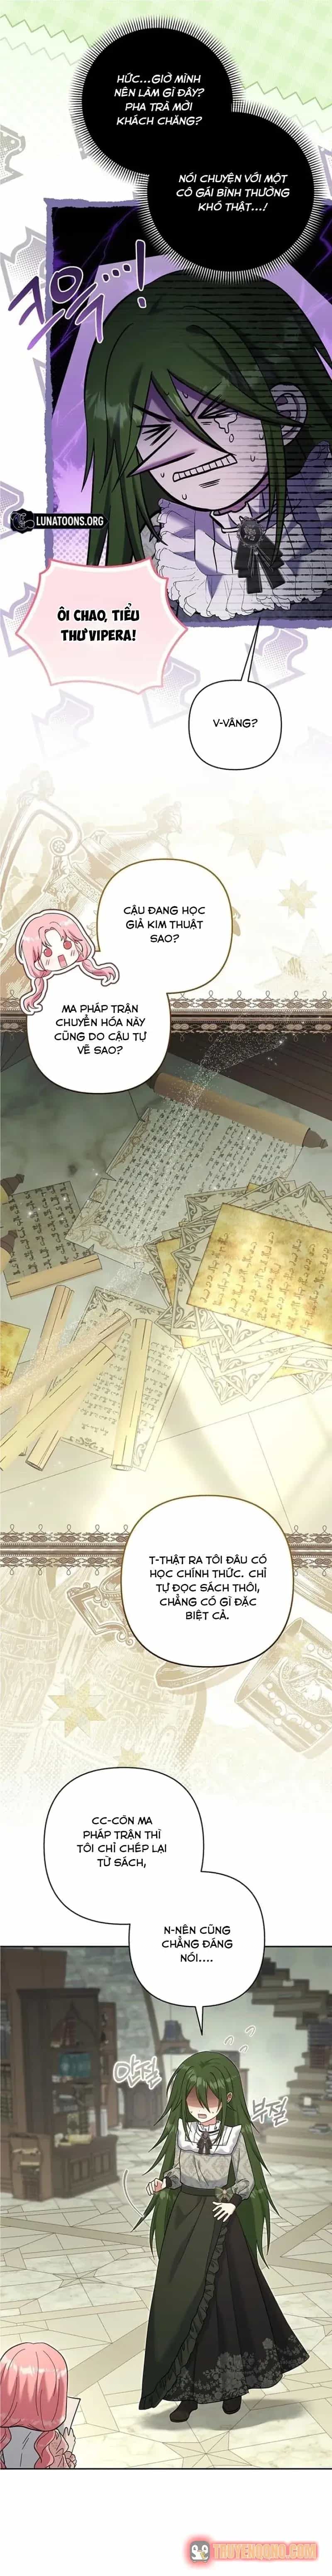 HỨC...GIỜ MÌNH
NÊN LÀM GÌ ĐÂY?
PHA TRÀ MỜI
KHÁCH CHĂNG?
NÓI CHUYỆN VỚI MỘT
CÔ GÁI BÌNH THƯỜNG
KHÓ THẬT...!
LUNATOONS.ORG
ÔI CHAO, TIỂU
THƯ VIPERA!
V-VÂNG?
CẬU ĐANG HỌC
GIẢ KIM THUẬT
SAO?
MA PHÁP TRẬN
CHUYỂN HÓA NÀY
CŨNG DO CẬU TỰ
VẼ SAO?
T-THẬT RA TÔI ĐÂU CÓ
HỌC CHÍNH THỨC. CHỈ
TỰ ĐỌC SÁCH THÔI,
CHẲNG CÓ GÌ ĐẶC
BIỆT CẢ.
CC-CÒN MA
PHÁP TRẬN THÌ
TÔI CHỈ CHÉP LẠI
TỪ SÁCH,
N-NÊN CŨNG
CHẲNG ĐÁNG
NÓI....
안절
부절
TRUYENQQNO.COM